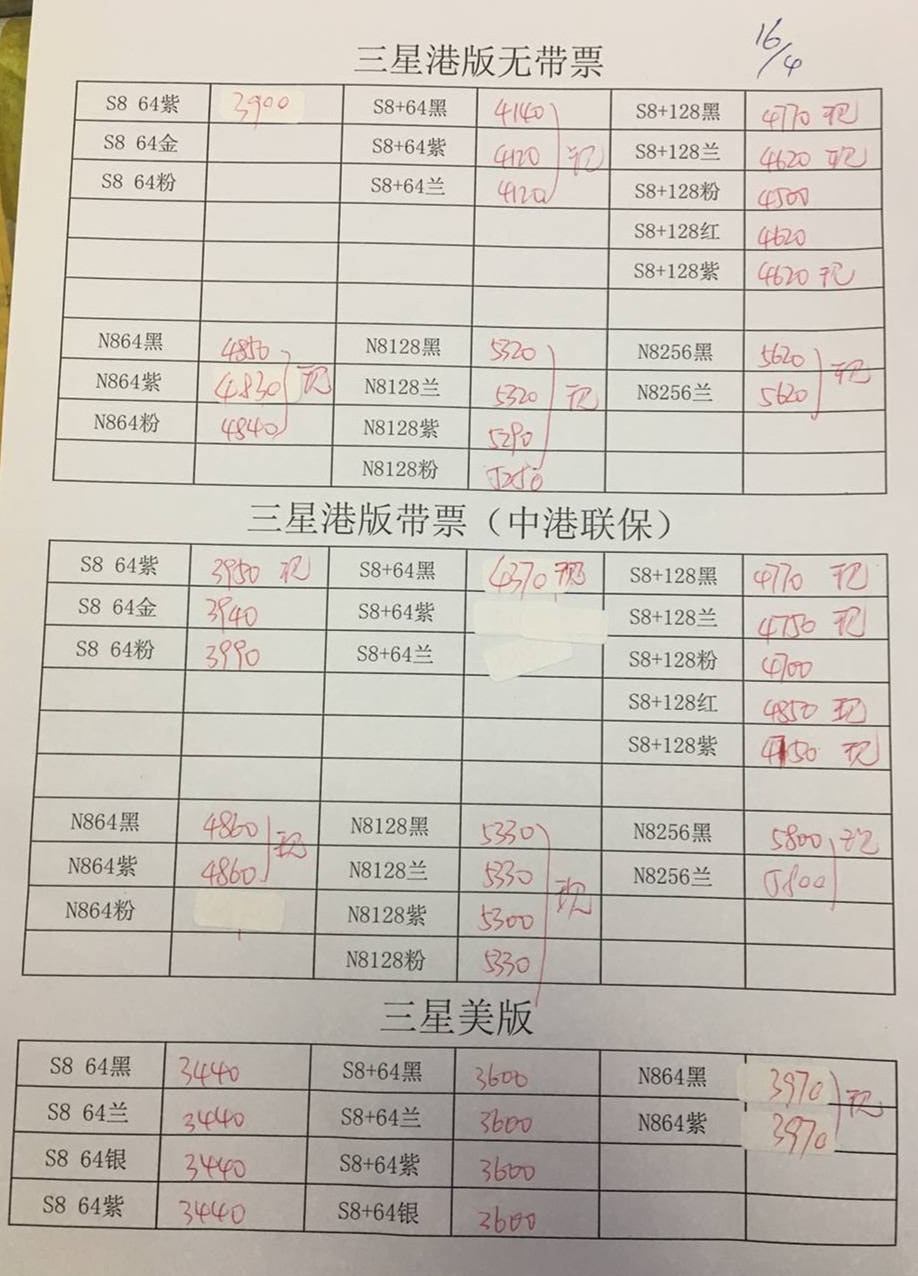 16/4
三星港版无带票
S8 64紫 3900 S8+64黑 4140 S8+128黑 4770 现
S8 64金 S8+64紫 4120 现 S8+128兰 4620 现
S8 64粉 S8+64兰 4120 S8+128粉 4500
S8+128红 4620
S8+128紫 4620 现
N864黑 4850 N8128黑 5320 N8256黑 5620 现
N864紫 4830 现 N8128兰 5320 现 N8256兰 5620
N864粉 4840 N8128紫 5290
N8128粉 5250
三星港版带票（中港联保）
S8 64紫 3950 现 S8+64黑 4370 现 S8+128黑 4770 现
S8 64金 3940 S8+64紫 S8+128兰 4750 现
S8 64粉 3990 S8+64兰 S8+128粉 4700
S8+128红 4850 现
S8+128紫 4750 现
N864黑 4860 现 N8128黑 5330 N8256黑 5800 现
N864紫 4860 N8128兰 5330 现 N8256兰 5800
N864粉 N8128紫 5300
N8128粉 5330
三星美版
S8 64黑 3440 S8+64黑 3600 N864黑 3970 现
S8 64兰 3440 S8+64兰 3600 N864紫 3970
S8 64银 3440 S8+64紫 3600
S8 64紫 3440 S8+64银 3600